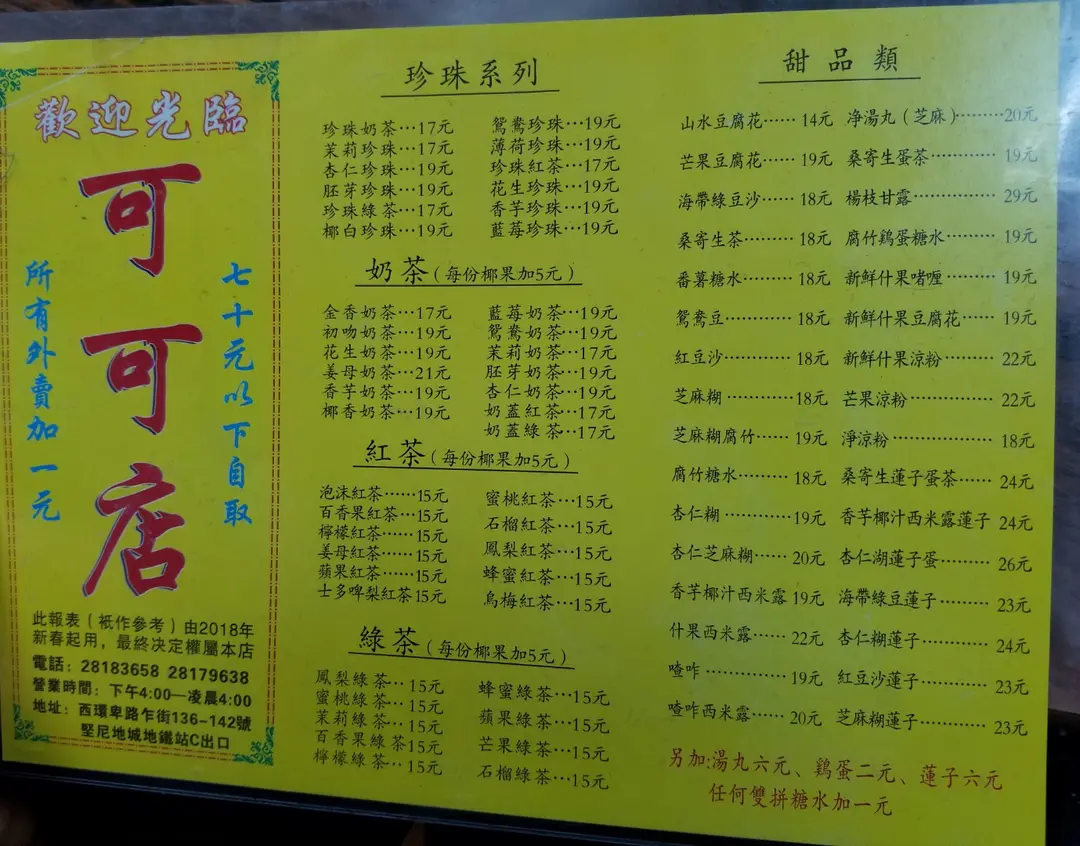 歡迎光臨
可可店
七十元以下自取
所有外賣加一元
此報表（祇作參考）由2018年
新春起用，最終決定權屬本店
電話：28183658 28179638
營業時間：下午4:00—凌晨4:00
地址：西環卑路乍街136-142號
堅尼地城地鐵站C出口
珍珠系列
珍珠奶茶…17元
茉莉珍珠…17元
杏仁珍珠…19元
胚芽珍珠…19元
珍珠綠茶…17元
椰白珍珠…19元
鴛鴦珍珠…19元
薄荷珍珠…19元
珍珠紅茶…17元
花生珍珠…19元
香芋珍珠…19元
藍莓珍珠…19元
奶茶（每份椰果加5元）
金香奶茶…17元
初吻奶茶…19元
花生奶茶…19元
姜母奶茶…21元
香芋奶茶…19元
椰香奶茶…19元
藍莓奶茶…19元
鴛鴦奶茶…19元
茉莉奶茶…17元
胚芽奶茶…19元
杏仁奶茶…19元
奶蓋紅茶…17元
奶蓋綠茶…17元
紅茶（每份椰果加5元）
泡沫紅茶……15元
百香果紅茶…15元
檸檬紅茶……15元
姜母紅茶……15元
蘋果紅茶……15元
士多啤梨紅茶15元
蜜桃紅茶…15元
石榴紅茶…15元
鳳梨紅茶…15元
蜂蜜紅茶…15元
烏梅紅茶…15元
綠茶（每份椰果加5元）
鳳梨綠茶‥15元
蜜桃綠茶‥15元
茉莉綠茶‥15元
百香果綠茶15元
檸檬綠茶‥15元
蜂蜜綠茶…15元
蘋果綠茶…15元
芒果綠茶…15元
石榴綠茶…15元
甜品類
山水豆腐花……14元
芒果豆腐花……19元
海帶綠豆沙……18元
桑寄生茶………18元
番薯糖水………18元
鴛鴦豆…………18元
紅豆沙…………18元
芝麻糊…………18元
芝麻糊腐竹……19元
腐竹糖水………18元
杏仁糊…………19元
杏仁芝麻糊……20元
香芋椰汁西米露19元
什果西米露……22元
喳咋……………19元
喳咋西米露……20元
净湯丸（芝麻）………20元
桑寄生蛋茶…………19元
楊枝甘露……………29元
腐竹鷄蛋糖水………19元
新鮮什果啫喱………19元
新鮮什果豆腐花……19元
新鮮什果涼粉………22元
芒果涼粉……………22元
淨涼粉………………18元
桑寄生蓮子蛋茶……24元
香芋椰汁西米露蓮子 24元
杏仁湖蓮子蛋………26元
海帶綠豆蓮子………23元
杏仁糊蓮子…………24元
紅豆沙蓮子…………23元
芝麻糊蓮子…………23元
另加:湯丸六元、鷄蛋二元、蓮子六元
任何雙拼糖水加一元